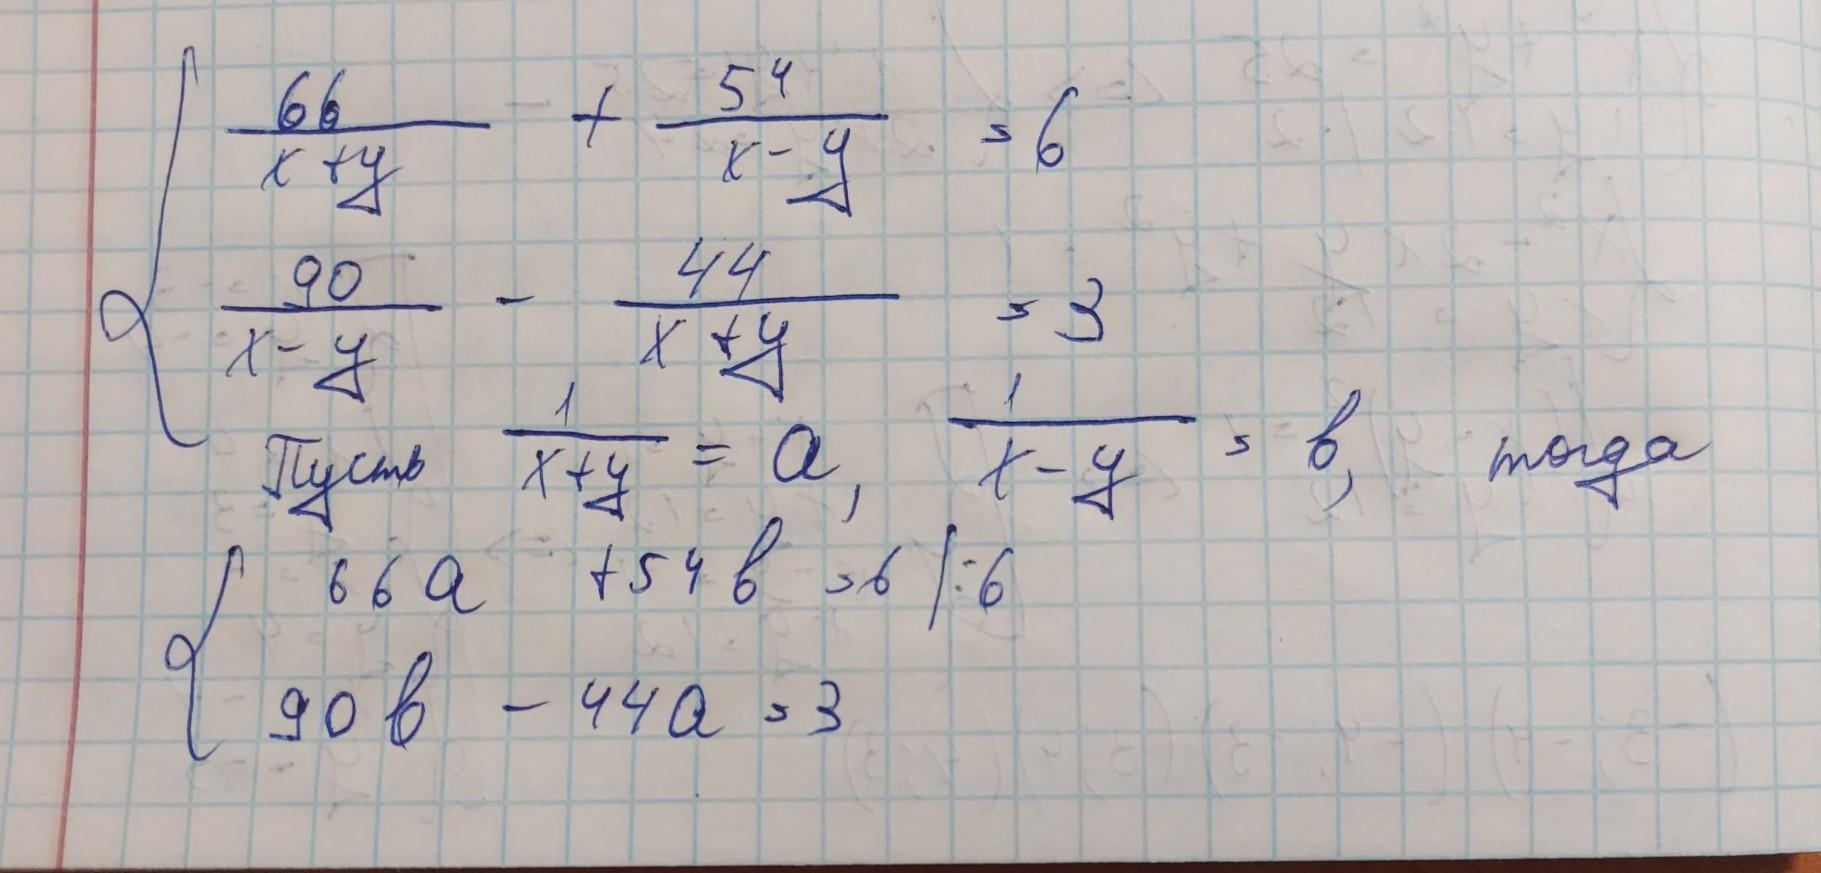 66/(x+y) + 54/(x-y) = 6
90/(x-y) - 44/(x+y) = 3
Пусть 1/(x+y) = a, 1/(x-y) = в, тогда
66a + 54в = 6 |:6
90в - 44a = 3